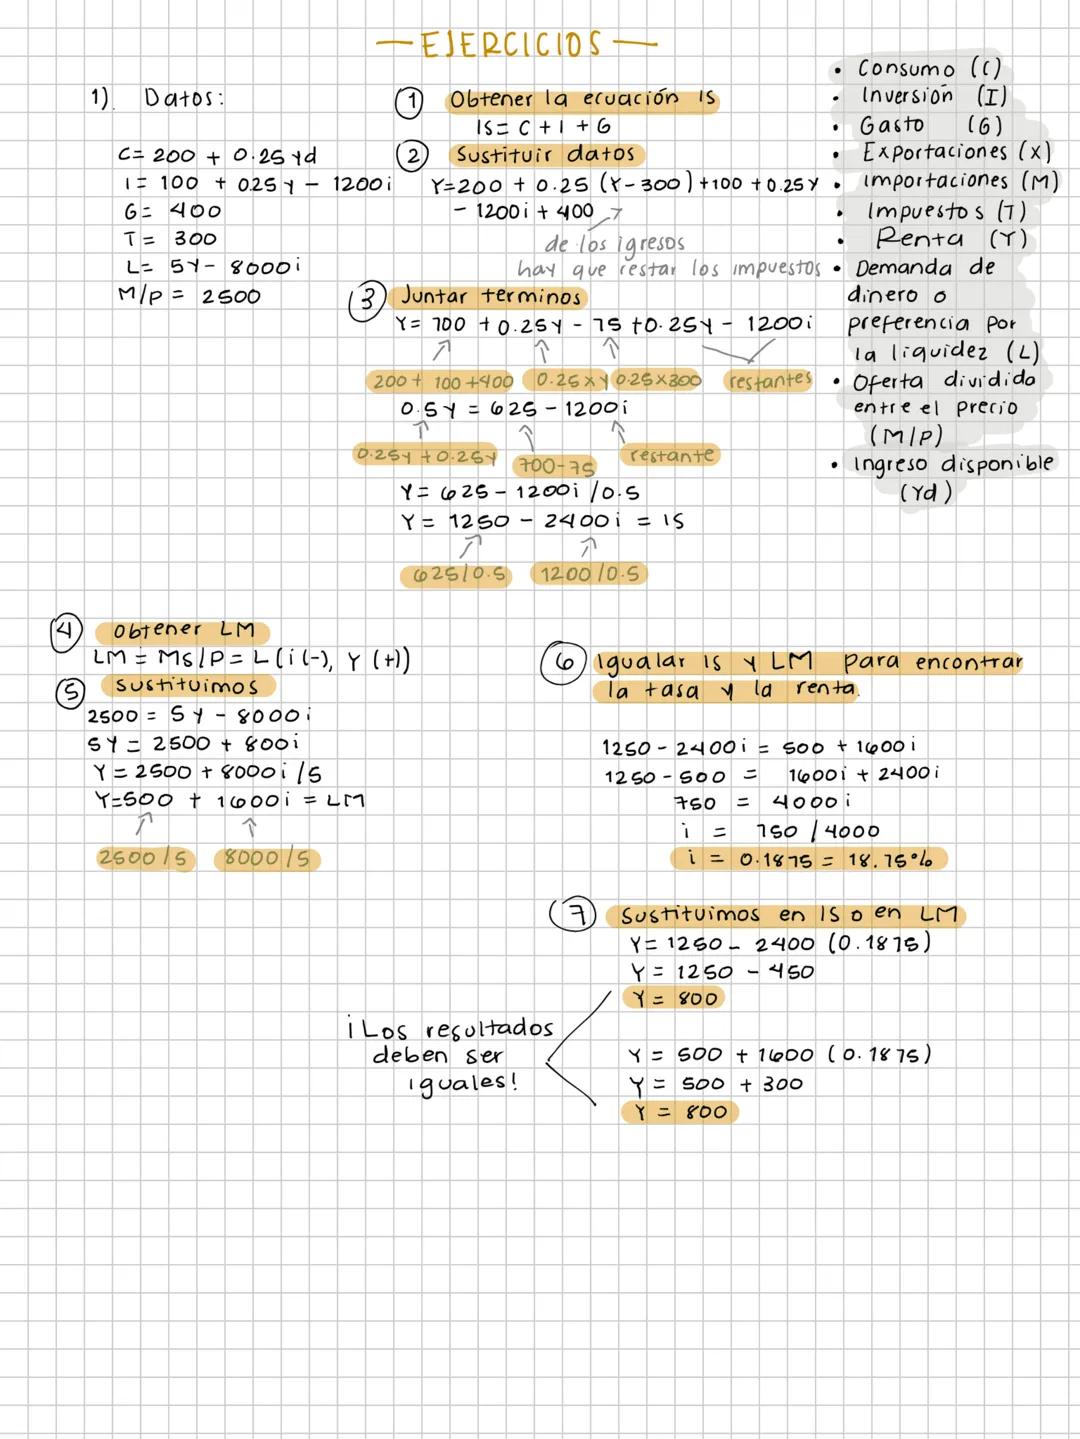 — EJERCICIOS —
1) Datos:
C= 200 + 0.25 yd
I= 100 + 0.25 y - 1200i
G= 400
T= 300
L= 5Y- 8000i
M/p = 2500
① Obtener la ecuación IS
IS= C + I + G
② Sustituir datos
Y=200 + 0.25 (Y-300)+100 +0.25Y
- 1200i + 400
de los igresos
hay que restar los impuestos
③ Juntar terminos
Y= 700 +0.25Y - 75 +0.25Y - 1200i
200+ 100 +400 0.25 x Y 0.25x300 restantes
0.5Y = 625 - 1200i
0.25Y +0.25Y 700-75 restante
Y= 625- 1200i /0.5
Y= 1250 - 2400i = IS
625/0.5 1200/0.5
• Consumo (C)
• Inversión (I)
• Gasto (G)
• Exportaciones (X)
• Importaciones (M)
• Impuestos (T)
• Renta (Y)
• Demanda de
dinero o
preferencia por
la liquidez (L)
• Oferta dividido
entre el precio
(M/P)
• Ingreso disponible
(Yd)
④ Obtener LM
LM = Ms/P= L(i(-), Y (+))
⑤ Sustituimos
2500 = 5Y - 8000i
5Y = 2500 + 800i
Y= 2500 + 8000i /5
Y=500 + 1600i = LM
2500/5 8000/5
⑥ Igualar IS y LM para encontrar
la tasa y la renta.
1250- 2400i = 500 + 1600i
1250-500 = 1600i + 2400i
750 = 4000i
i = 750 / 4000
i = 0.1875 = 18.75%
⑦ Sustituimos en IS o en LM
Y= 1250- 2400 (0.1875)
Y= 1250 - 450
Y= 800
¡Los resultados
deben ser
iguales!
Y = 500 + 1600 (0.1875)
Y = 500 + 300
Y = 800